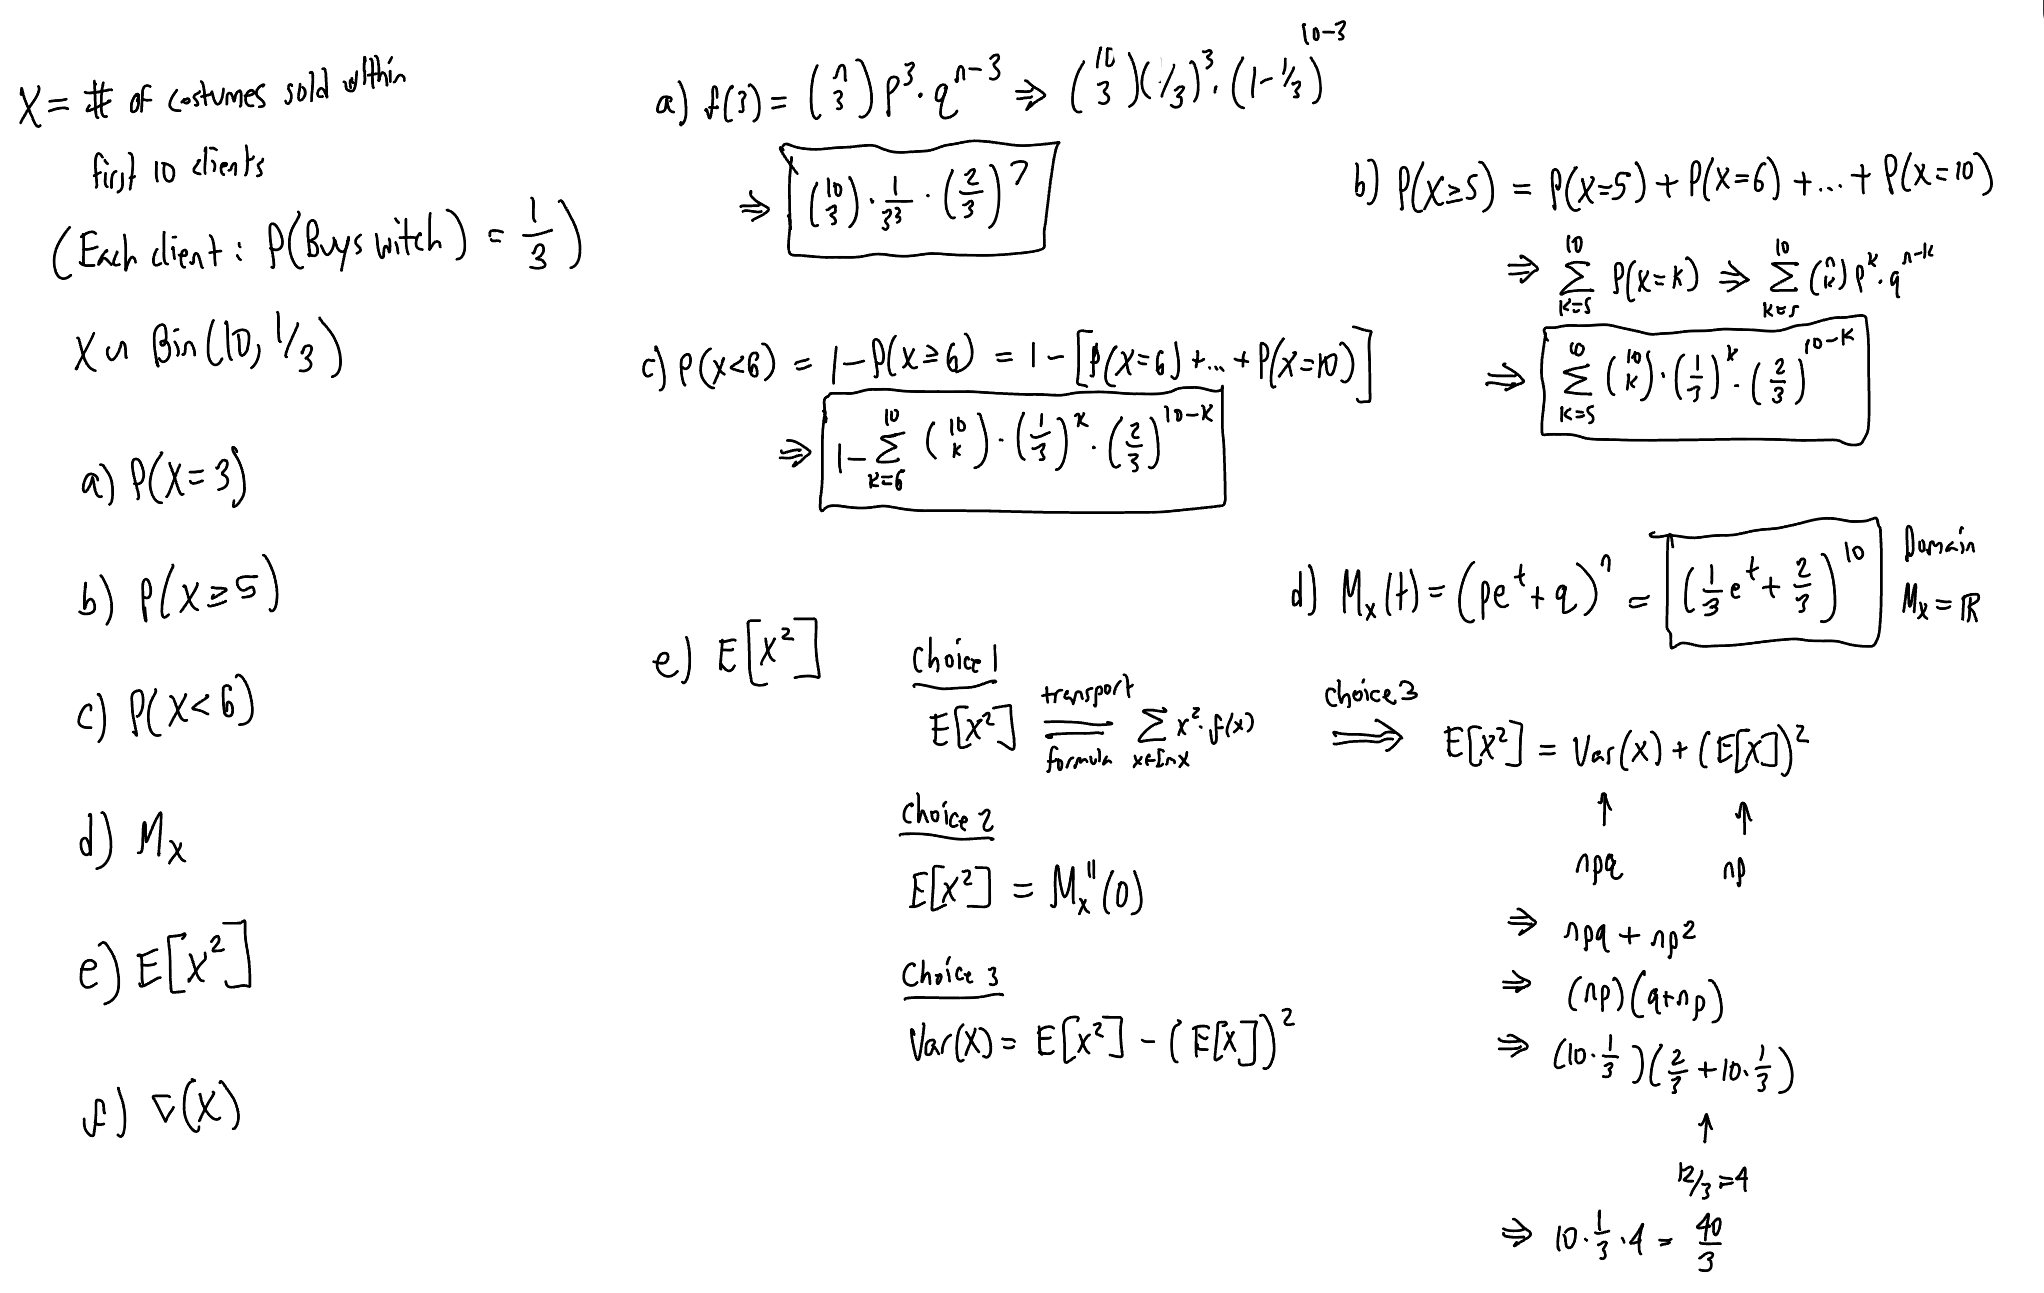 X = # of costumes sold within
first 10 clients
(Each client : P(Buys witch) = 1/3)
X ~ Bin(10, 1/3)
a) P(X=3)
b) P(X≥5)
c) P(X<6)
d) M_X
e) E[X²]
f) ∇(X)
a) f(3) = (n 3) p³ · q^(n-3) ⇒ (10 3)(1/3)³ · (1-1/3)^(10-3)
⇒ (10 3) · 1/3³ · (2/3)^7
b) P(X≥5) = P(X=5) + P(X=6) + ... + P(X=10)
⇒ ∑_{k=5}^{10} P(X=k) ⇒ ∑_{k=5}^{10} (n k) p^k · q^(n-k)
⇒ ∑_{k=5}^{10} (10 k) · (1/3)^k · (2/3)^(10-k)
c) P(X<6) = 1 - P(X≥6) = 1 - [P(X=6) + ... + P(X=10)]
⇒ 1 - ∑_{k=6}^{10} (10 k) · (1/3)^k · (2/3)^(10-k)
d) M_X(t) = (pe^t + q)^n = (1/3 e^t + 2/3)^10
Domain
M_X = ℝ
e) E[X²]
Choice 1
E[X²] = transport formula ∑_{x∈Im X} x² · f(x)
Choice 2
E[X²] = M_X''(0)
Choice 3
Var(X) = E[X²] - (E[X])²
Choice 3
⇒ E[X²] = Var(X) + (E[X])²
↑ ↑
npq np
⇒ npq + np²
⇒ (np)(q+np)
⇒ (10·1/3)(2/3 + 10·1/3)
↑
12/3 = 4
⇒ 10·1/3·4 = 40/3